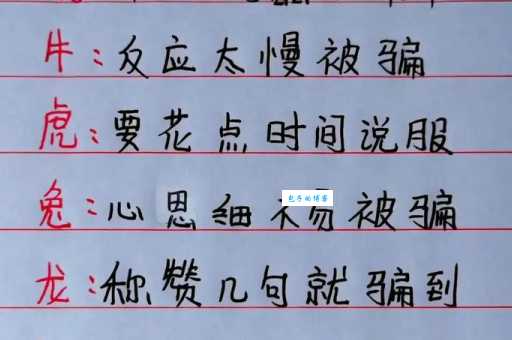 牛:反应太慢被骗
虎:要花点时间说服
兔:心思细不易被骗
包子的博客
龙:称赞几句就骗到